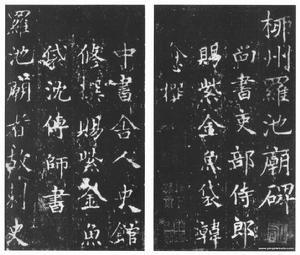 柳州羅池廟碑
尚書吏部侍郎
賜紫金魚袋韓
愈撰
中書舍人史館
修撰賜紫金魚
袋沈傳師書
羅池廟者故刺史